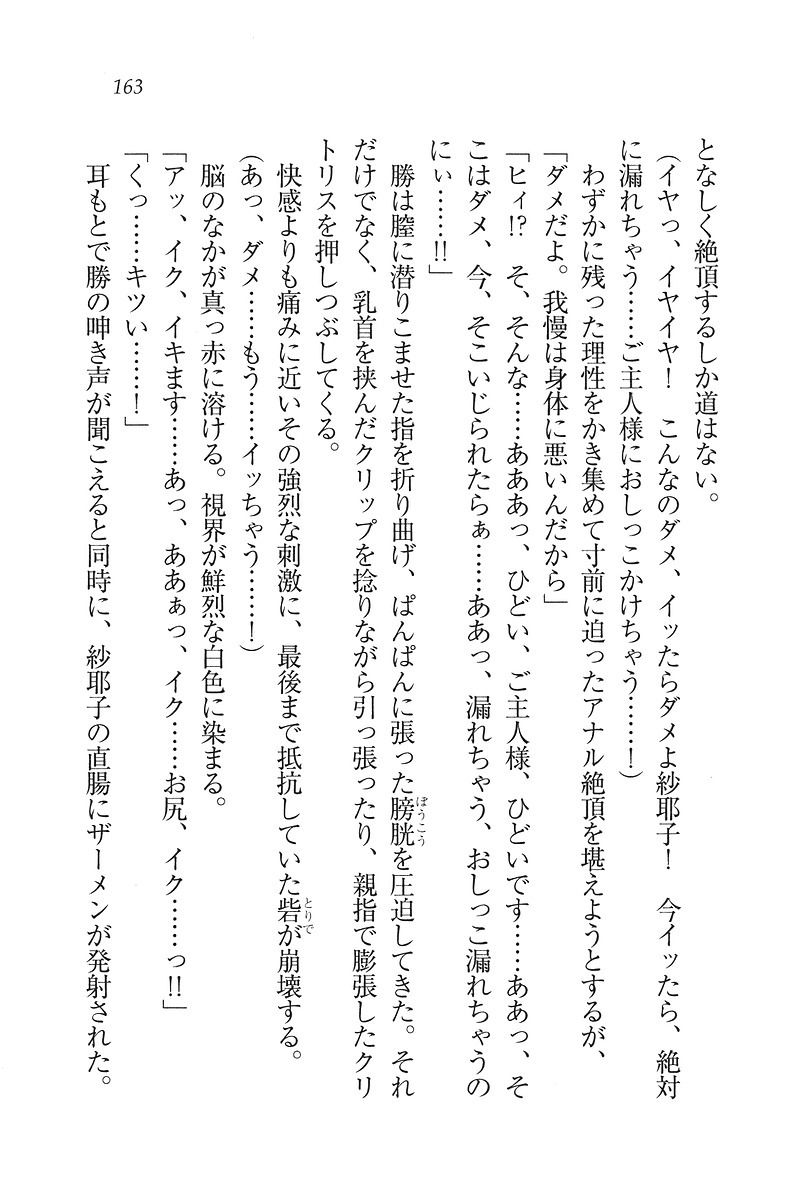 163
となしく絶頂するしか道はない。
（イヤっ、イヤイヤ！　こんなのダメ、イッたらダメよ紗耶子！　今イッたら、絶対
に漏れちゃう……ご主人様におしっこかけちゃう……！）
わずかに残った理性をかき集めて寸前に迫ったアナル絶頂を堪えようとするが、
「ダメだよ。我慢は身体に悪いんだから」
「ヒィ!?　そ、そんな……あああっ、ひどい、ご主人様、ひどいです……ああっ、そ
こはダメ、今、そこいじられたらぁ……ああっ、漏れちゃう、おしっこ漏れちゃうの
にぃ……!!」
勝は膣に潜りこませた指を折り曲げ、ぱんぱんに張った膀胱を圧迫してきた。それ
だけでなく、乳首を挟んだクリップを捻りながら引っ張ったり、親指で膨張したクリ
トリスを押しつぶしてくる。
快感よりも痛みに近いその強烈な刺激に、最後まで抵抗していた砦が崩壊する。
（あっ、ダメ……もう……イッちゃう……！）
脳のなかが真っ赤に溶ける。視界が鮮烈な白色に染まる。
「アッ、イク、イキます……あっ、ああぁっ、イク……お尻、イク……っ!!」
「くっ……キツい……！」
耳もとで勝の呻き声が聞こえると同時に、紗耶子の直腸にザーメンが発射された。